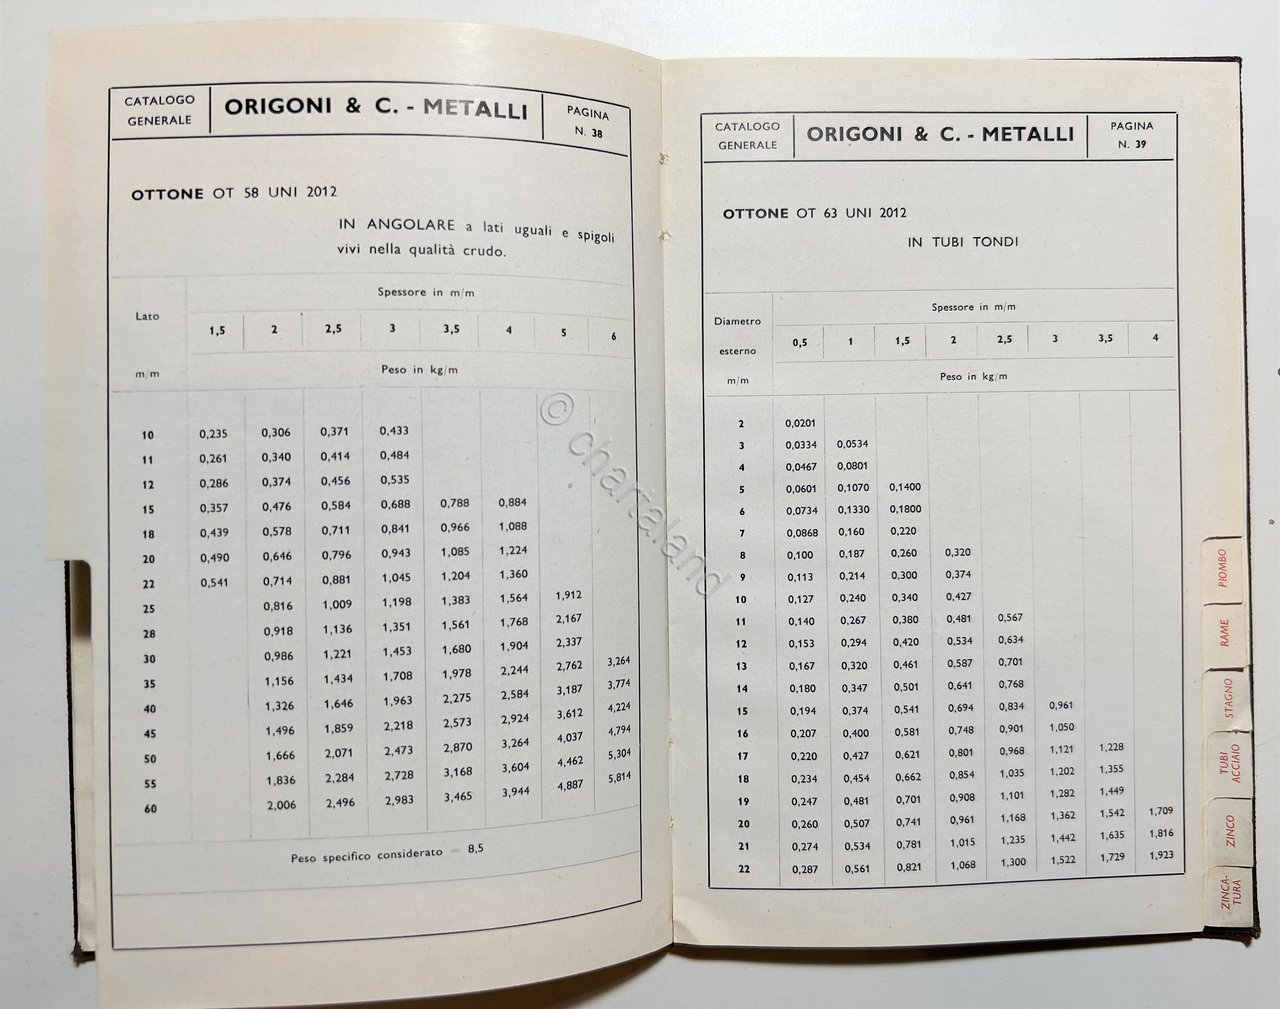 CATALOGO GENERALE
ORIGONI & C. - METALLI
PAGINA N. 38
OTTONE OT 58 UNI 2012
IN ANGOLARE a lati uguali e spigoli
vivi nella qualità crudo.
Lato
m/m
Spessore in m/m
1,5 2 2,5 3 3,5 4 5 6
Peso in kg/m
10 0,235 0,306 0,371 0,433
11 0,261 0,340 0,414 0,484
12 0,286 0,374 0,456 0,535
15 0,357 0,476 0,584 0,688 0,788 0,884
18 0,439 0,578 0,711 0,841 0,966 1,088
20 0,490 0,646 0,796 0,943 1,085 1,224
22 0,541 0,714 0,881 1,045 1,204 1,360
25 0,816 1,009 1,198 1,383 1,564 1,912
28 0,918 1,136 1,351 1,561 1,768 2,167
30 0,986 1,221 1,453 1,680 1,904 2,337
35 1,156 1,434 1,708 1,978 2,244 2,762 3,264
40 1,326 1,646 1,963 2,275 2,584 3,187 3,774
45 1,496 1,859 2,218 2,573 2,924 3,612 4,224
50 1,666 2,071 2,473 2,870 3,264 4,037 4,794
55 1,836 2,284 2,728 3,168 3,604 4,462 5,304
60 2,006 2,496 2,983 3,465 3,944 4,887 5,814
Peso specifico considerato = 8,5
CATALOGO GENERALE
ORIGONI & C. - METALLI
PAGINA N. 39
OTTONE OT 63 UNI 2012
IN TUBI TONDI
Diametro
esterno
m/m
Spessore in m/m
0,5 1 1,5 2 2,5 3 3,5 4
Peso in kg/m
2 0,0201
3 0,0334 0,0534
4 0,0467 0,0801
5 0,0601 0,1070 0,1400
6 0,0734 0,1330 0,1800
7 0,0868 0,160 0,220
8 0,100 0,187 0,260 0,320
9 0,113 0,214 0,300 0,374
10 0,127 0,240 0,340 0,427
11 0,140 0,267 0,380 0,481 0,567
12 0,153 0,294 0,420 0,534 0,634
13 0,167 0,320 0,461 0,587 0,701
14 0,180 0,347 0,501 0,641 0,768
15 0,194 0,374 0,541 0,694 0,834 0,961
16 0,207 0,400 0,581 0,748 0,901 1,050
17 0,220 0,427 0,621 0,801 0,968 1,121 1,228
18 0,234 0,454 0,662 0,854 1,035 1,202 1,355
19 0,247 0,481 0,701 0,908 1,101 1,282 1,449
20 0,260 0,507 0,741 0,961 1,168 1,362 1,542 1,709
21 0,274 0,534 0,781 1,015 1,235 1,442 1,635 1,816
22 0,287 0,561 0,821 1,068 1,300 1,522 1,729 1,923
PIOMBO
RAME
STAGNO
TUBI
ACCIAIO
ZINCO
ZINCA-
TURA
© chartaland